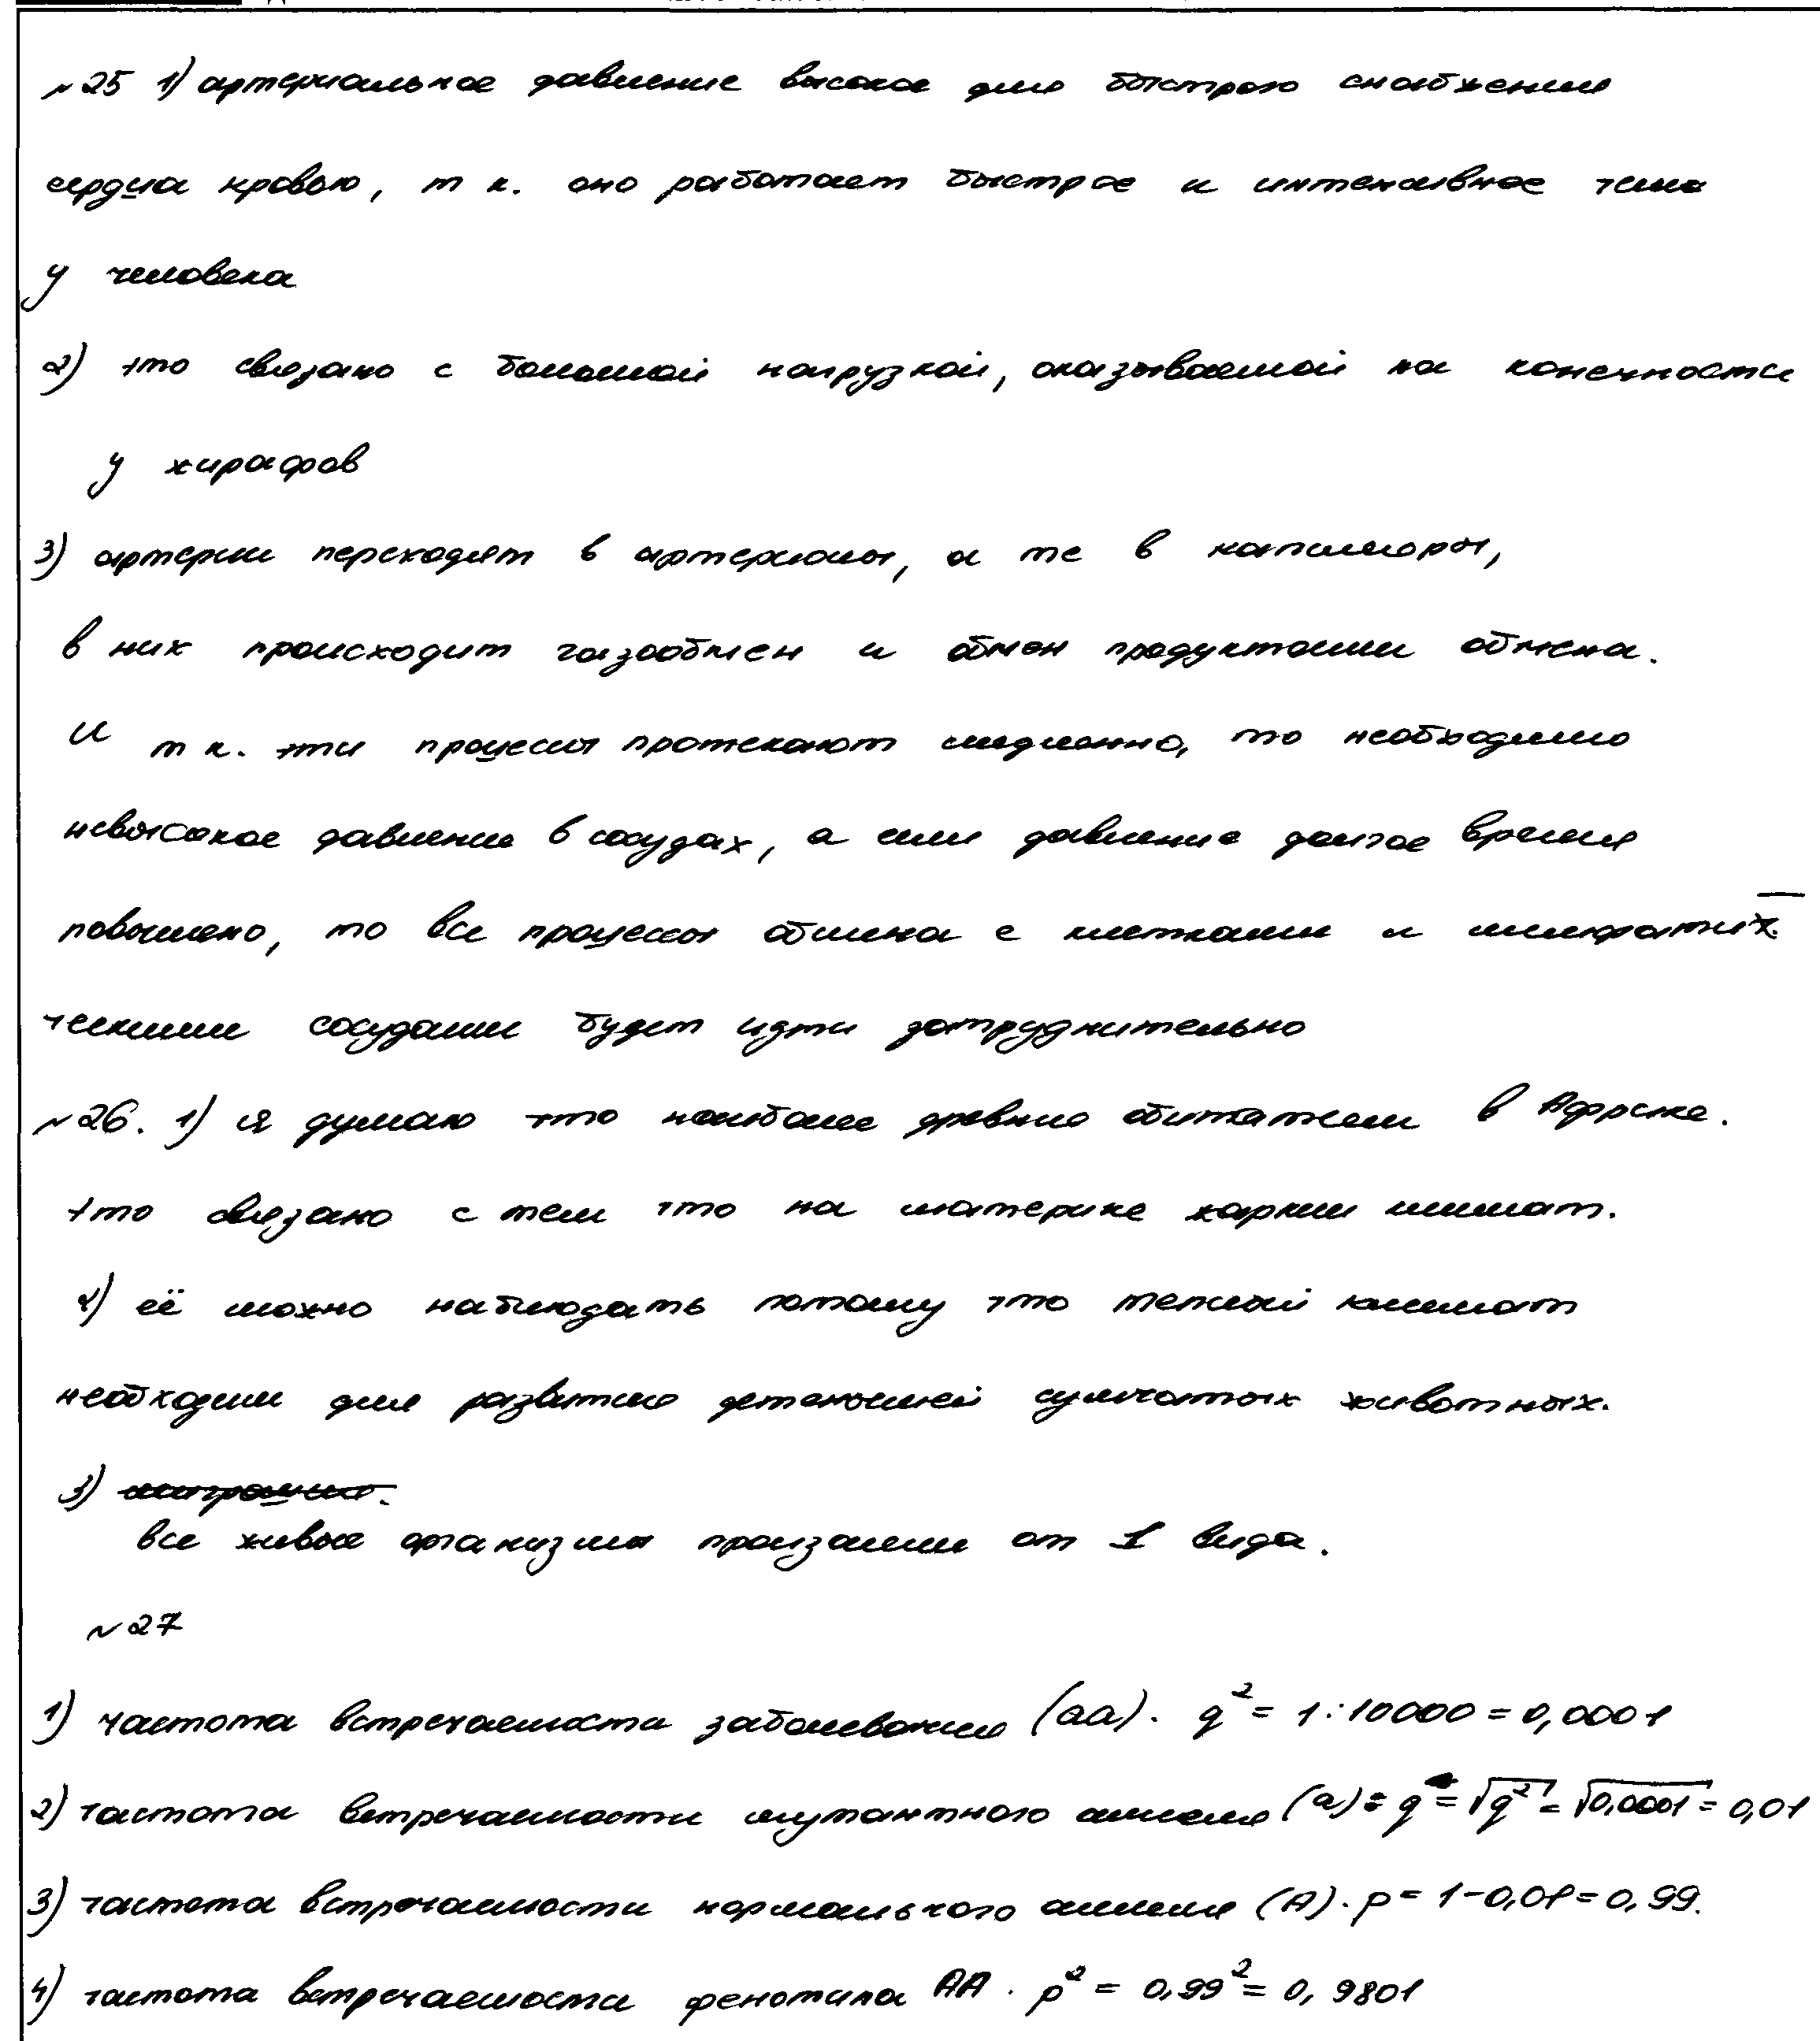 №25 1) артериальное давление высокое для быстрого снабжения
сердца кровью, т к. оно работает быстрее и интенсивнее чем
у человека
2) это связано с большой нагрузкой, оказываемой на конечности
у жирафов
3) артерии переходят в артериолы, а те в капилляры,
в них происходит газообмен и обмен продуктами обмена.
И т к. эти процессы протекают медленно, то необходимо
невысокое давление в сосудах, а если давление долгое время
повышено, то все процессы обмена с клетками и лимфати
ческими сосудами будет идти затруднительно
№26. 1) я думаю что наиболее древние обитатели в Африке.
это связано с тем что на материке жаркий климат.
2) её можно наблюдать потому что теплый климат
необходим для развития детенышей сумчатых животных.
3)
все живые организмы произошли от 1 вида.
№27
1) частота встречаемости заболевания (aa). q² = 1:10000 = 0,0001
2) частота встречаемости мутантного аллеля (a) = q = √q² = √0,0001 = 0,01
3) частота встречаемости нормального аллеля (A). p = 1-0,01 = 0,99.
4) частота встречаемости фенотипа AA. p² = 0,99² = 0,9801